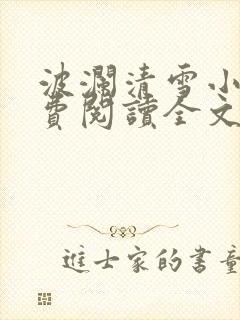 波瀾清雪小
費閱讀全文
進士家的書童